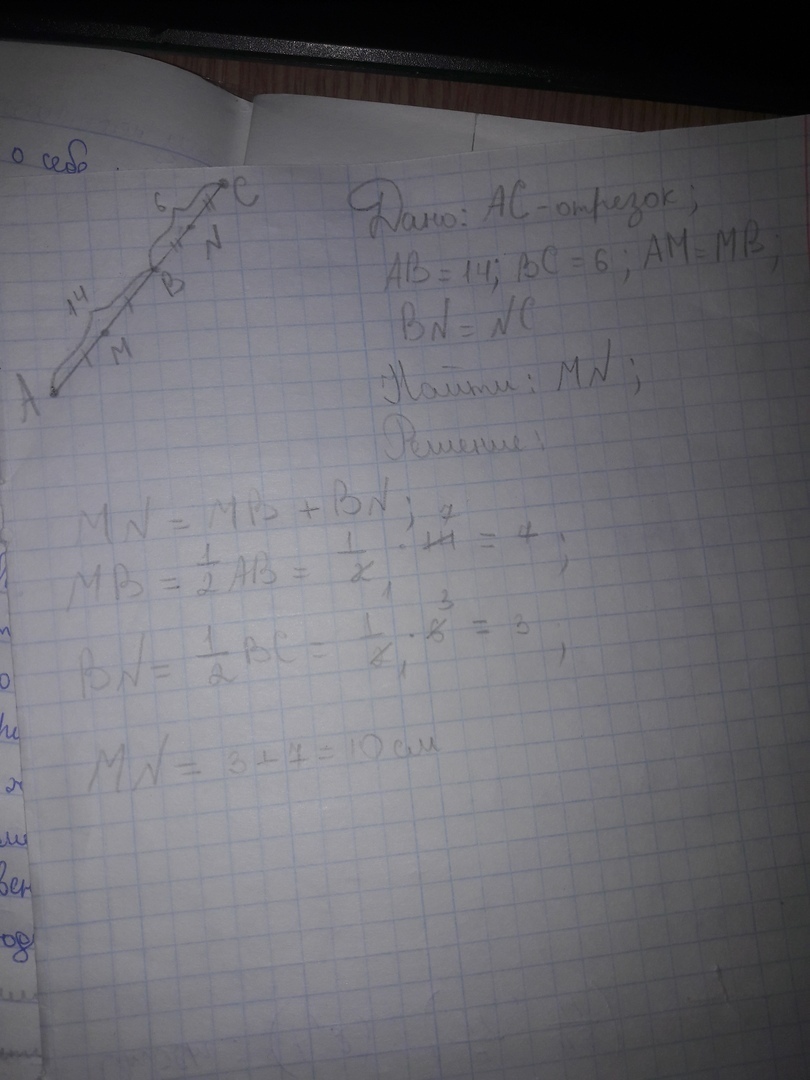 о себо
6
C
N
B
14
M
A
Дано: AC-отрезок;
AB = 14; BC = 6; AM = MB;
BN = NC
Найти: MN;
Решение:
MN = MB + BN;
MB = 1/2 AB = 1/2 · 14 = 7;
7
1
BN = 1/2 BC = 1/2 · 6 = 3;
3
1
MN = 3 + 7 = 10 см